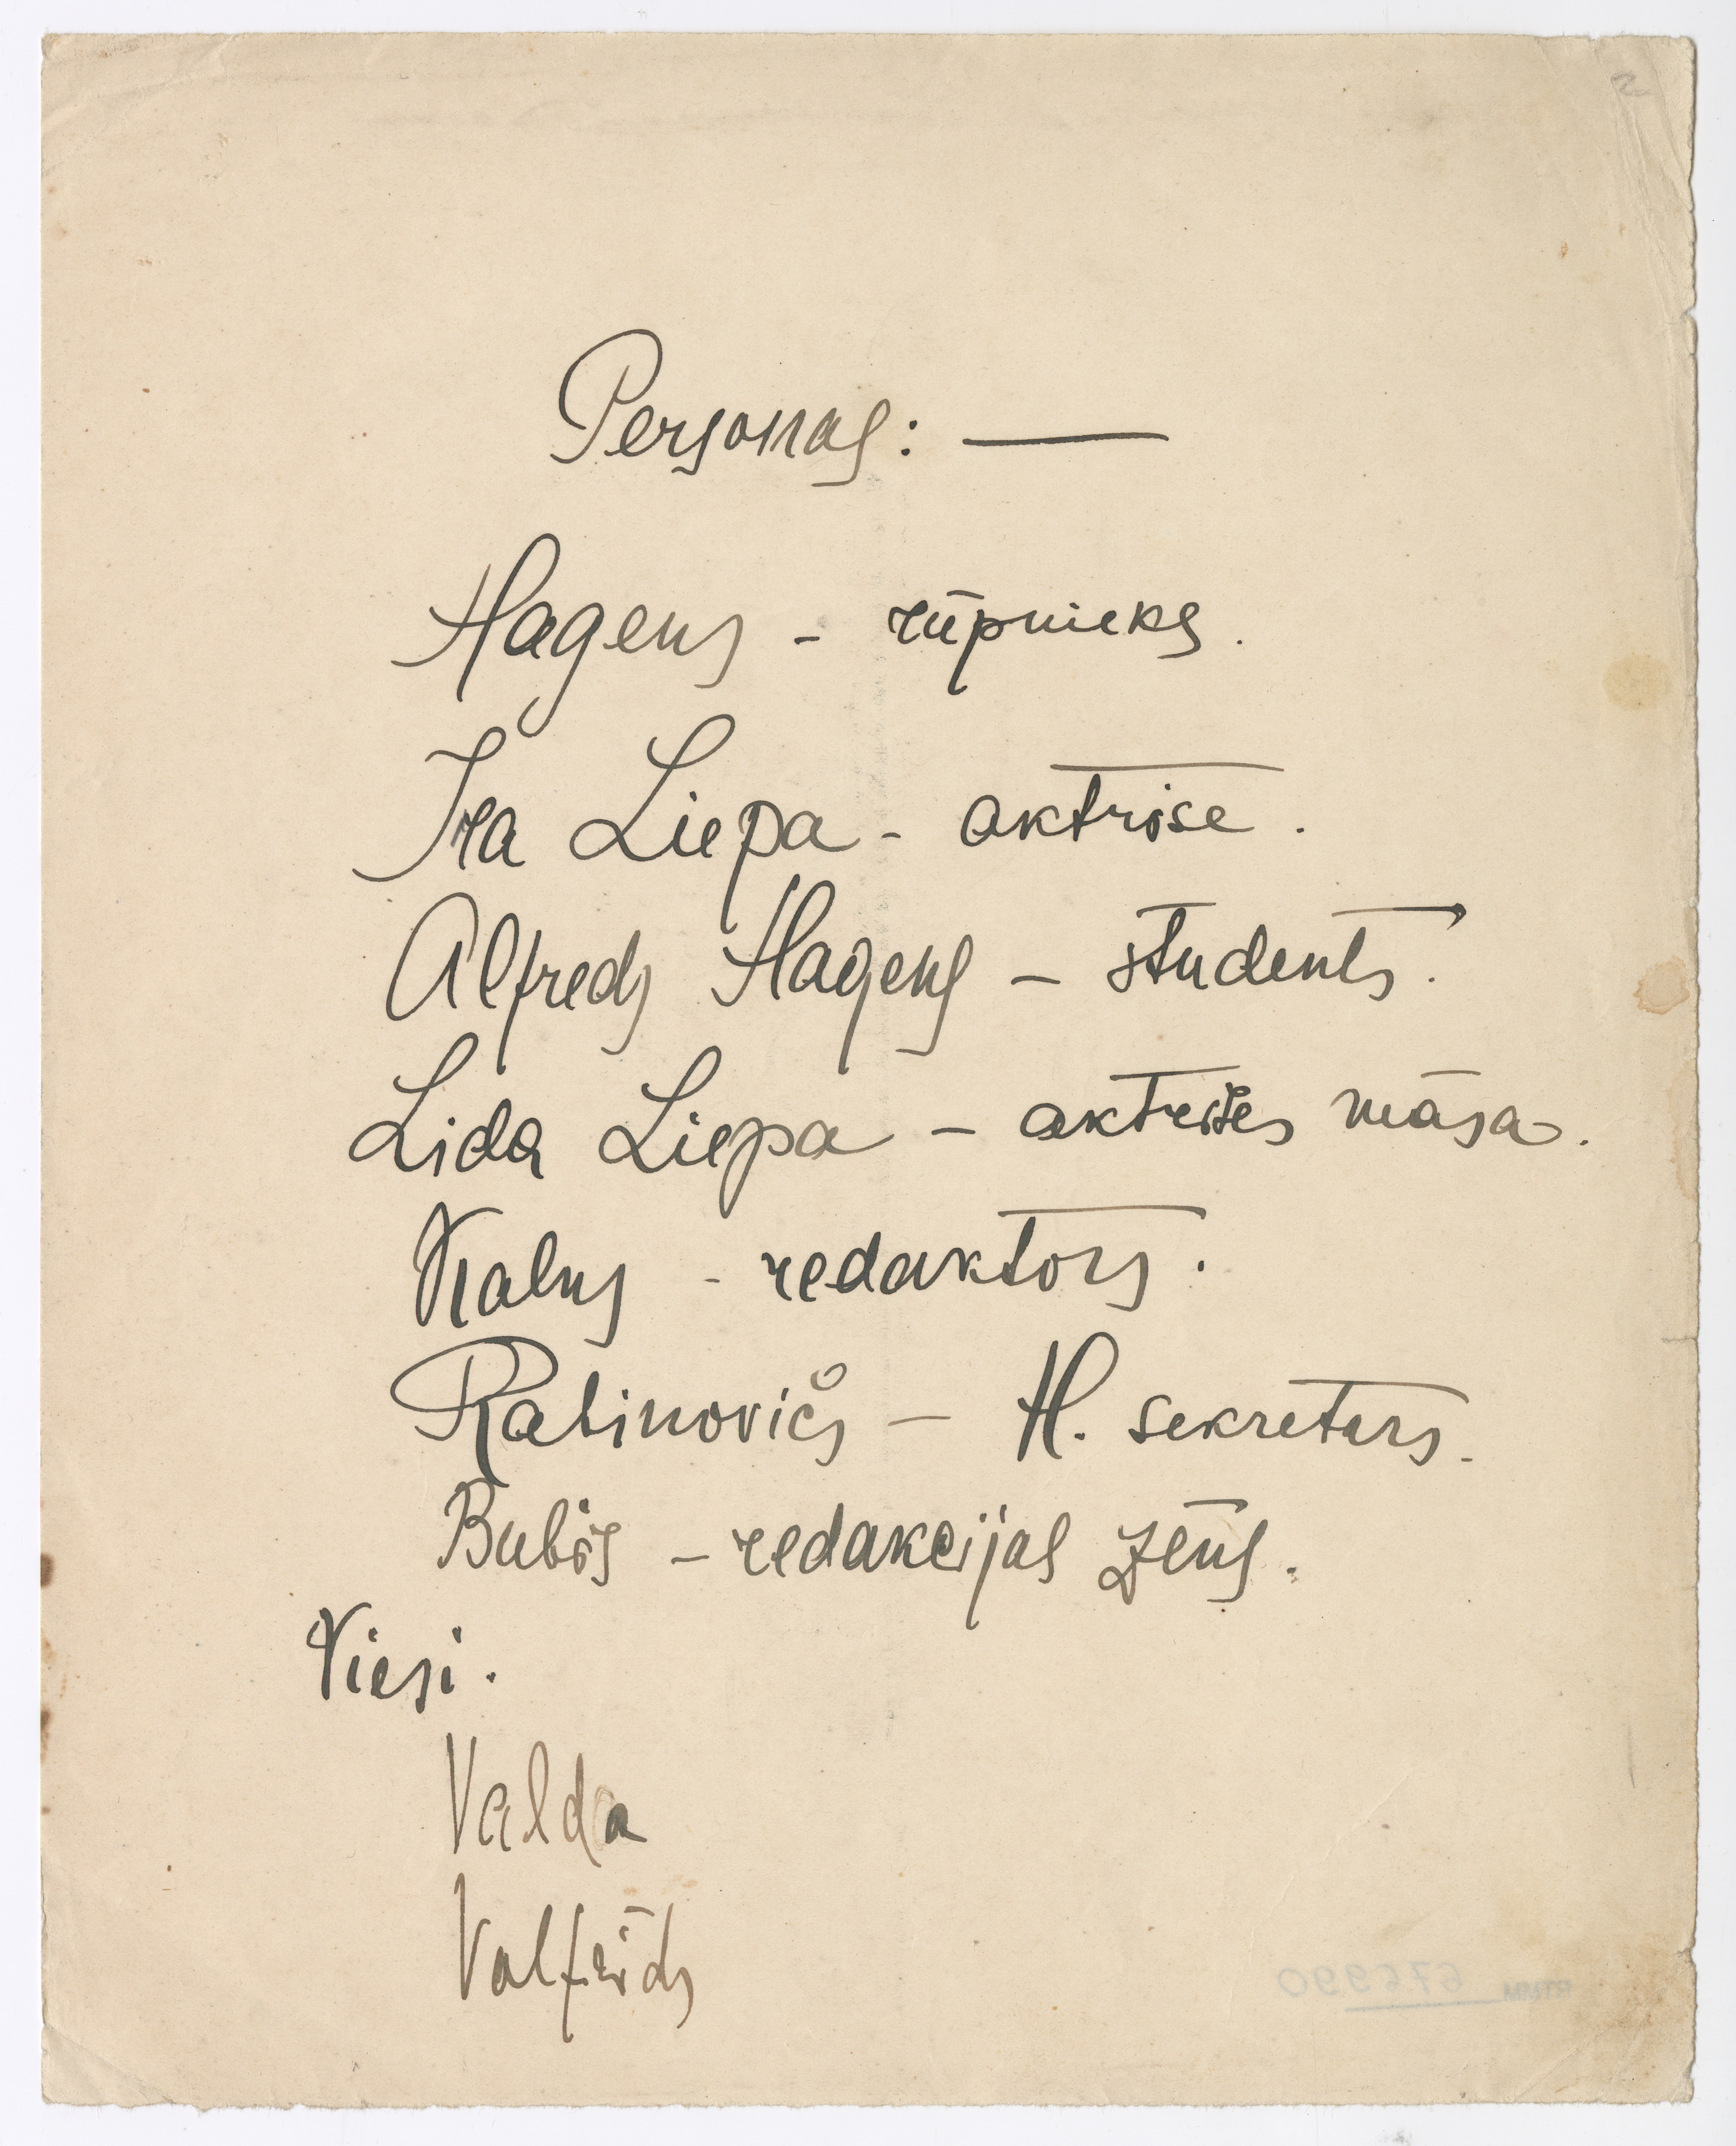 2
Personas: —
Hagens - rūpnieks.
Ira Liepa - aktrise.
Alfreds Hagens - students.
Lida Liepa - aktrises māsa.
Kalns - redaktors.
Rabinovičs - H. sekretars.
Bubis - redakcijas zēns.
Viesi.
Valda
Valfrīds